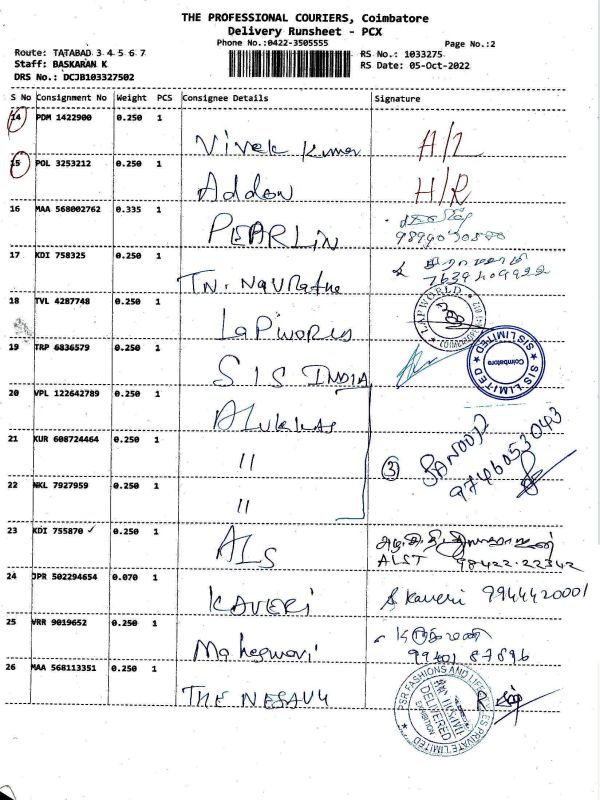 THE PROFESSIONAL COURIERS, Coimbatore
Delivery Runsheet - PCX
Phone No.:0422-3505555
Page No.:2
Route: TATABAD 3 4 5 6 7
RS No.: 1033275
Staff: BASKARAN K
RS Date: 05-Oct-2022
DRS No.: DCJB103327502
S No Consignment No Weight PCS Consignee Details Signature
14 PDM 1422900 0.250 1
Vivek Kumar A/2
15 POL 3253212 0.250 1
Addon H/R
16 MAA 568002762 0.335 1
PEARLIN
17 KDI 758325 0.250 1
TN. Navratne
18 TVL 4287748 0.250 1
LAPWORLD
19 TRP 6836579 0.250 1
SIS LIMITED
Coimbatore
SIS LIMITED
SIS INDIA
20 VPL 122642789 0.250 1
ALUKKAS
21 KUR 608724464 0.250 1
11
3 SANOOJ
9746053043
22 NKL 7927959 0.250 1
11
23 KDI 755870 ✓ 0.250 1
ALS
ALST 98422.22342
24 JPR 502294654 0.070 1
KAVERI S Kaveri 9944420001
25 VRR 9019652 0.250 1
Maheswari 99401 87896
26 MAA 568113351 0.250 1
THE NESAVU
PSR FASHIONS AND LIFE ES PRIVATE LIMITED
DELIVERED